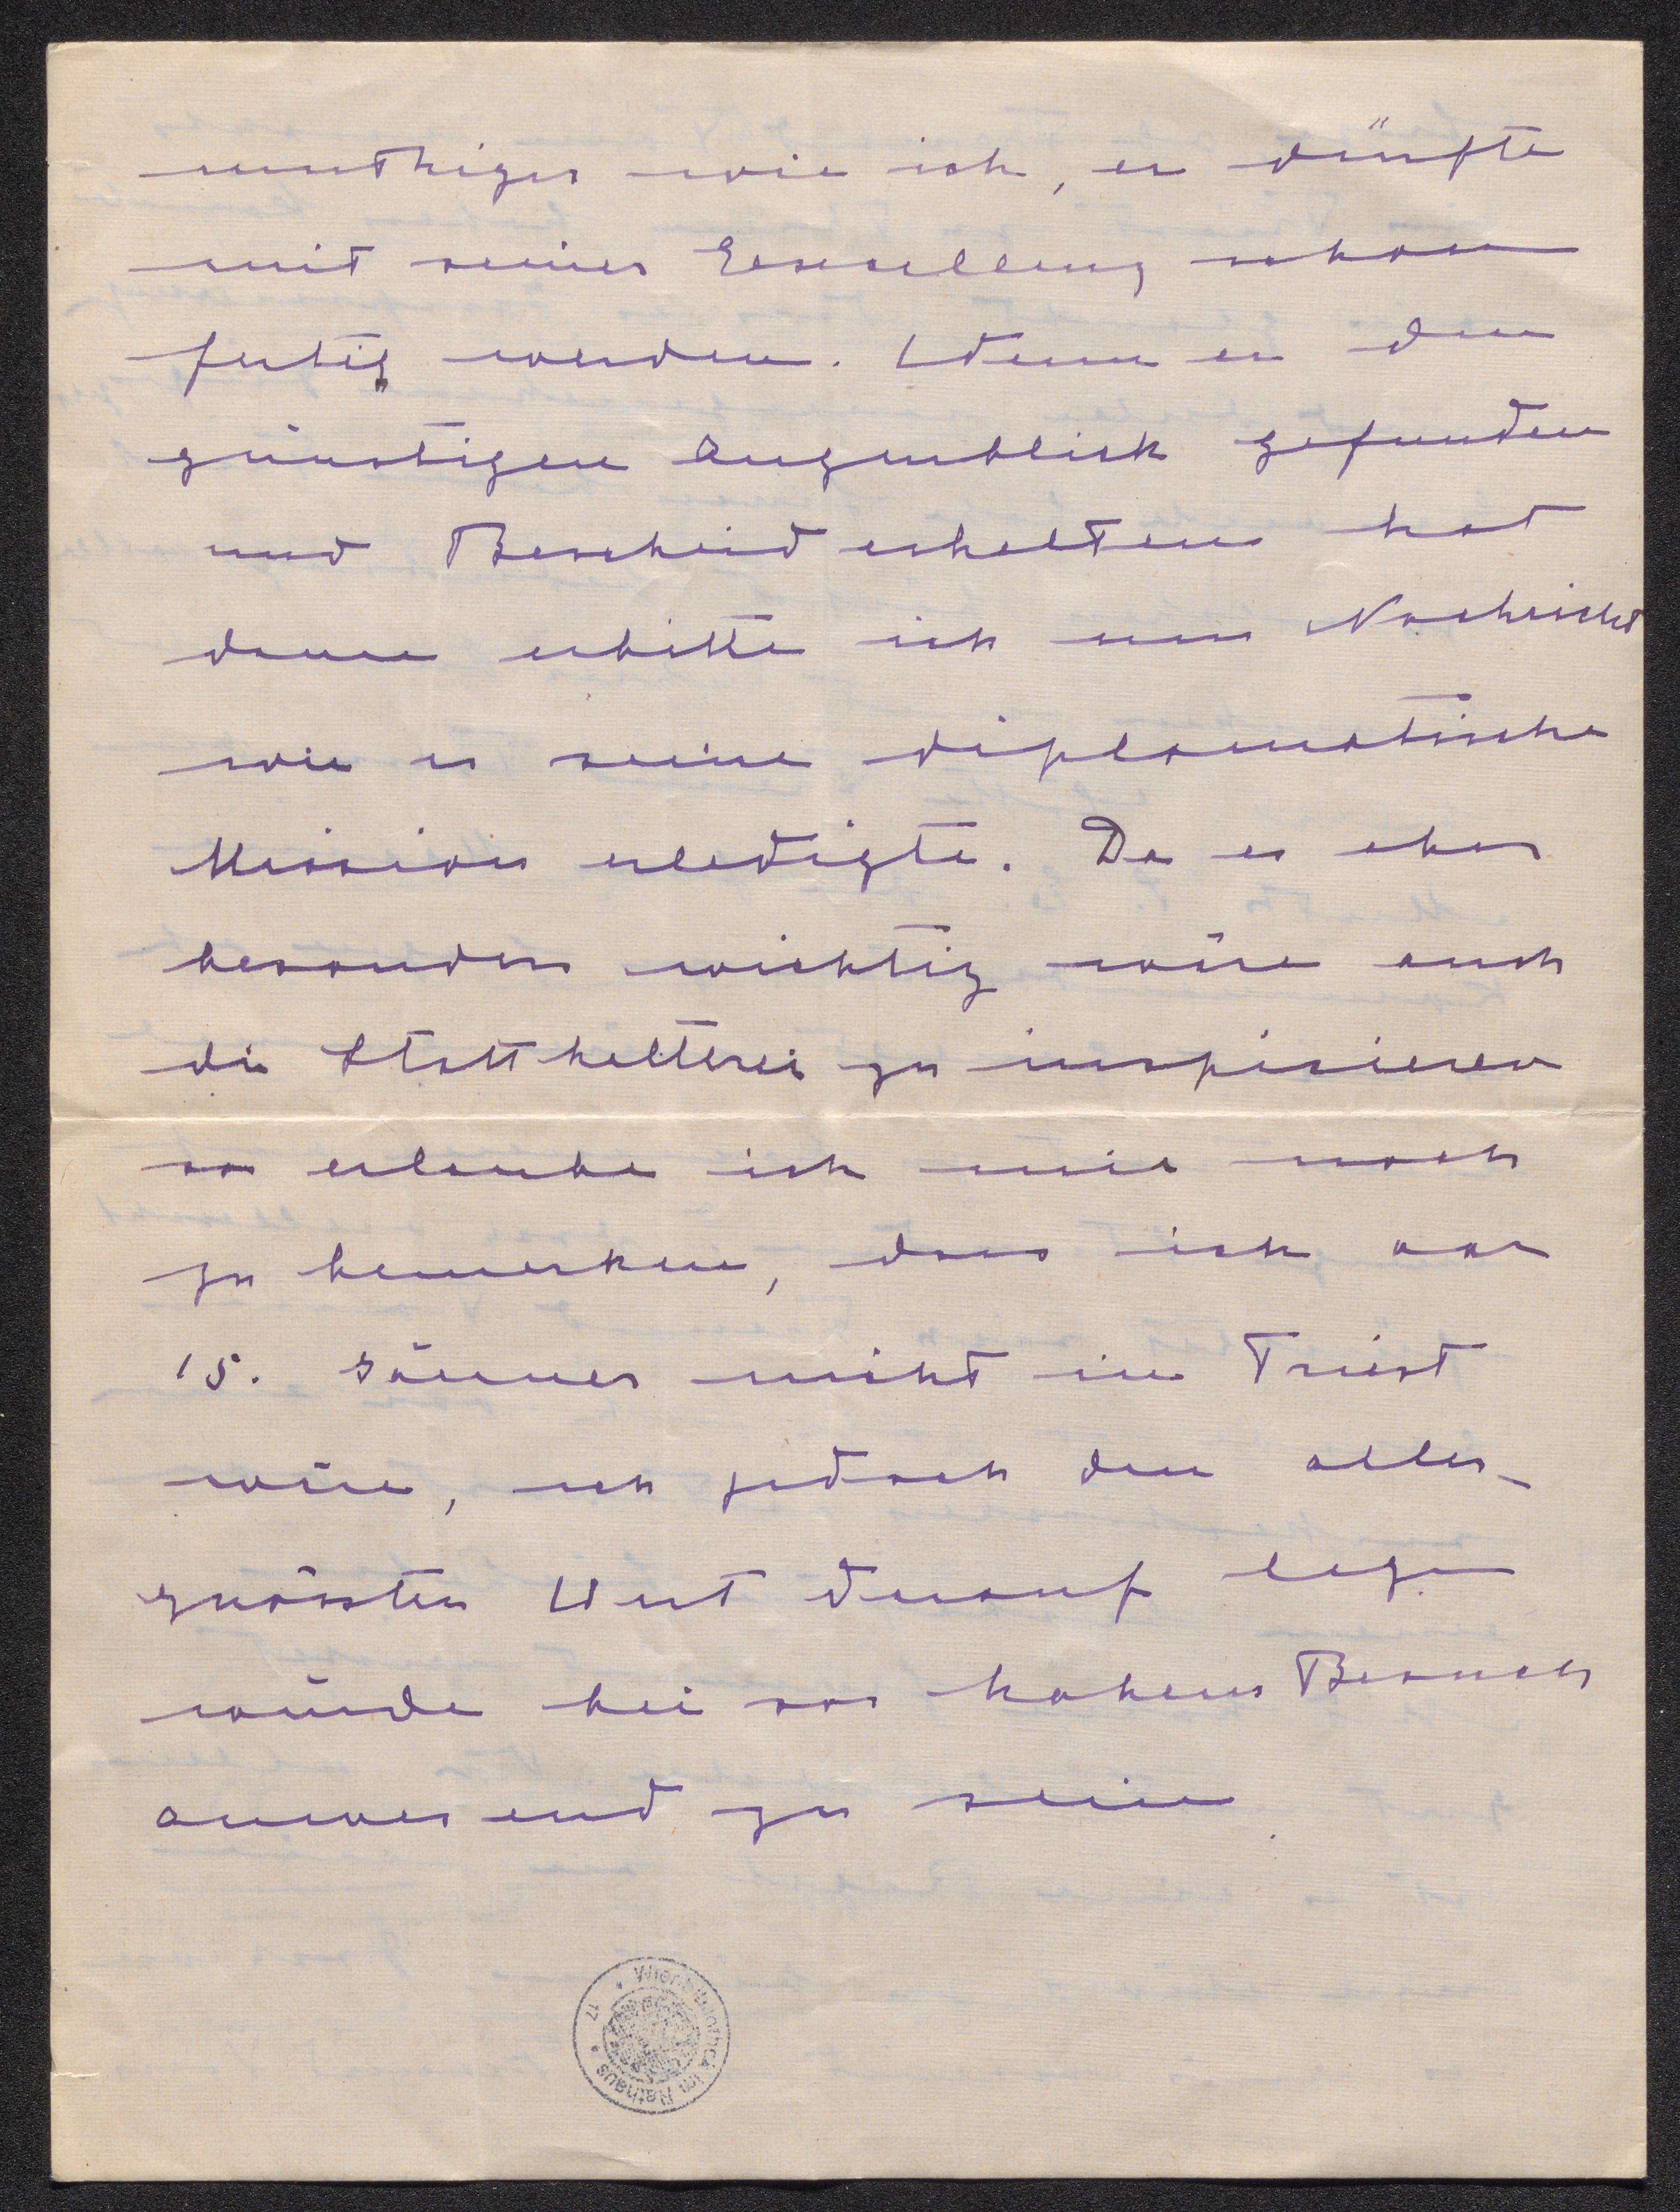 muthiger wie ich, er dürfte
mit seiner Excellenz schon
fertig werden. Wenn er den
günstigen Augenblick gefunden
und Bescheid erhalten hat
dann erbitte ich um Nachricht
wie er seine diplomatische
Mission erledigte. Da es aber
besonders wichtig wäre auch
die Statthalterei zu inspirieren
so erlaube ich mir noch
zu bemerken, dass ich vor
15. Jänner nicht in Triest
wäre, ich jedoch den aller-
grössten Wert darauf legen
würde bei so hohem Besuch
anwesend zu sein.
Wienbibliothek im Rathaus